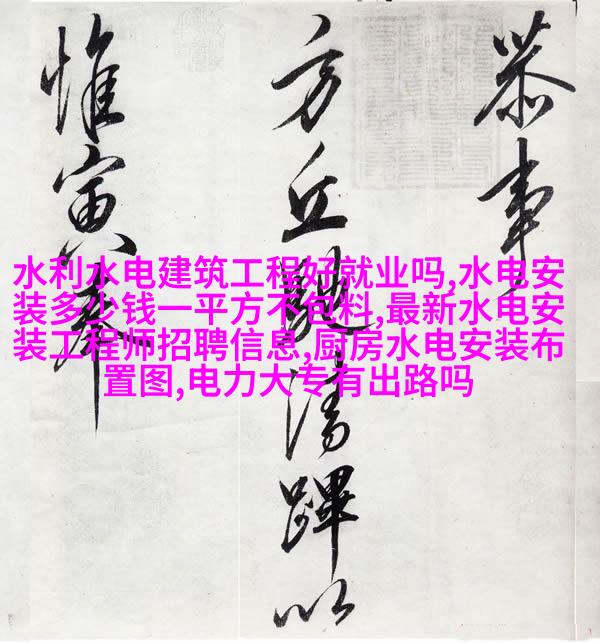 恭事
方丘清蹕以
惟寅奉
水利水电建筑工程好就业吗,水电安
装多少钱一平方不包料,最新水电安
装工程师招聘信息,厨房水电安装布
置图,电力大专有出路吗